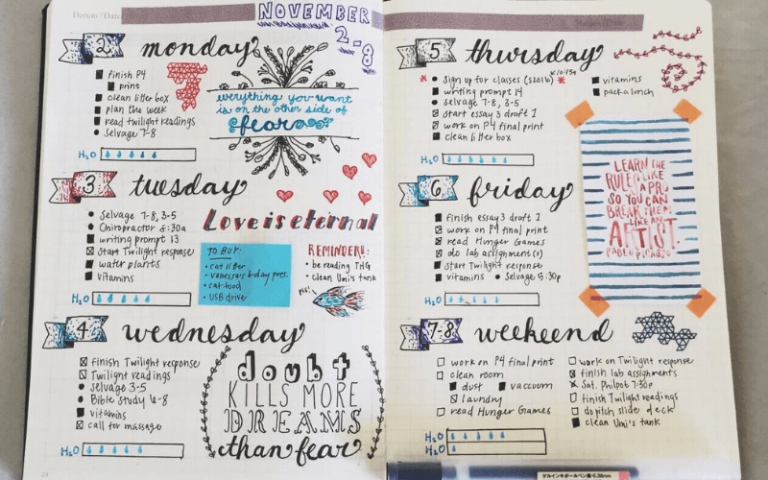 Datum / Date:
NOVEMBER
2-8
2 monday
finish P4
print
clean litter box
plan the week
read twilight readings
selvage 7-8
H2O
everything you want
is on the other side of
fear
3 tuesday
selvage 7-8, 3-5
Chiropractor 8:30a
writing prompt 13
start Twilight response
water plants
vitamins
H2O
Love is eternal
TO BUY:
cat litter
b-day pres.
cat food
USB drive
REMINDERS:
be reading THG
clean Umi's tank
4 wednesday
finish Twilight response
Twilight readings
selvage 3-5
Bible Study 6-8
vitamins
call for massage
H2O
doubt
KILLS MORE
DREAMS
than fear
5 thursday
sign up for classes
writing prompt 14
selvage 7-8, 3-5
start essay 3 draft 2
work on P4 final print
clean litter box
vitamins
pack a lunch
H2O
LEARN THE
RULES LIKE
A PRO
SO YOU CAN
BREAK THEM
LIKE AN
ARTIST.
PABLO PICASSO
6 friday
finish essay 3 draft 2
work on P4 final print
read Hunger Games
do lab assignment(s)
start Twilight response
vitamins
selvage 5:30p
H2O
7-8 weekend
work on P4 final print
clean room
dust
vaccuum
laundry
read Hunger Games
work on Twilight response
finish lab assignments
Sat. Philpot 7:30p
finish Twilight readings
do pitch slide deck
clean Umi's tank
H2O
H2O